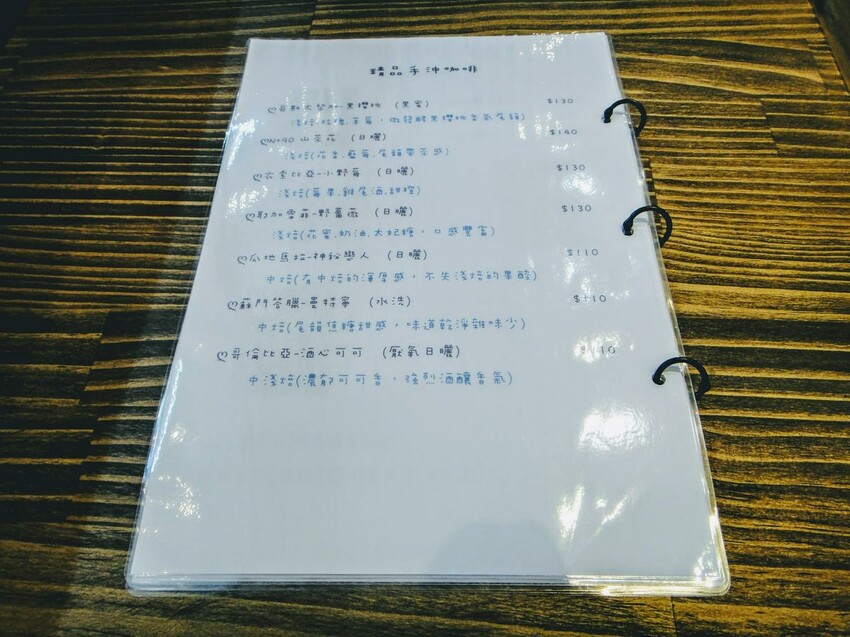 精品手沖咖啡
哥斯大黎加-黑櫻桃 (黑蜜) $130
淺焙 草莓,微發酵黑櫻桃香氣尾韻)
No40 山茶花 (日曬) $140
淺焙(花香.藍莓.尾韻帶茶感)
衣索比亞-小野莓 (日曬) $130
淺焙(莓果.雞尾酒.甜橙)
耶加雪菲-野薔薇 (日曬) $130
淺焙(花蜜.奶油.太妃糖,口感豐富)
瓜地馬拉-神秘戀人 (日曬) $110
中焙(有中焙的渾厚感,不失淺焙的果酸)
蘇門答臘-曼特寧 (水洗) $110
中焙(尾韻焦糖甜感,味道乾淨雜味少)
哥倫比亞-酒心可可 (厭氧日曬) $110
中淺焙(濃郁可可香,強烈酒釀香氣)